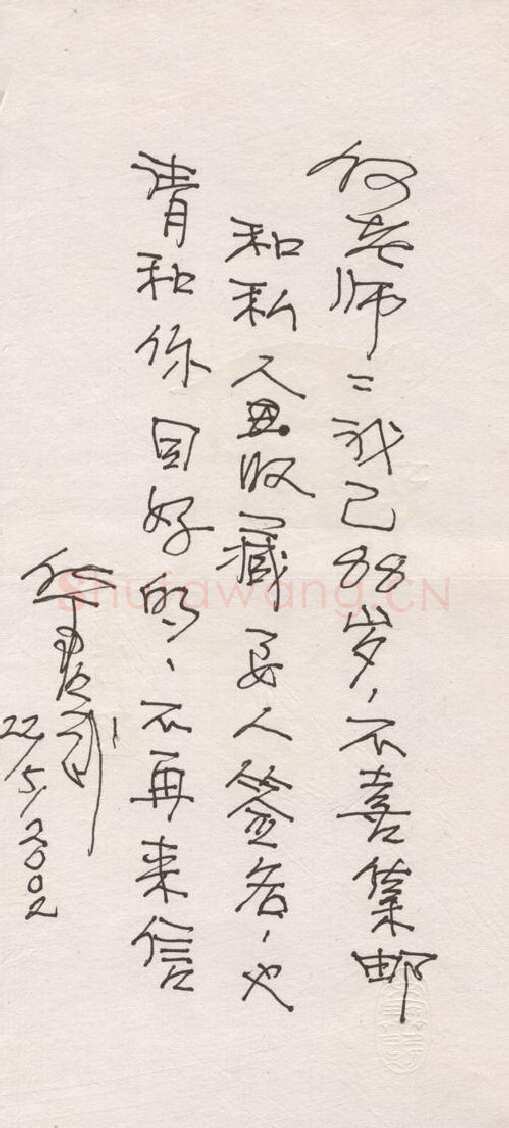 何老师：我已88岁，不喜集邮
和私人收藏名人签名，也
请和你同好的，不再来信
22/5/2002
shufawang.CN